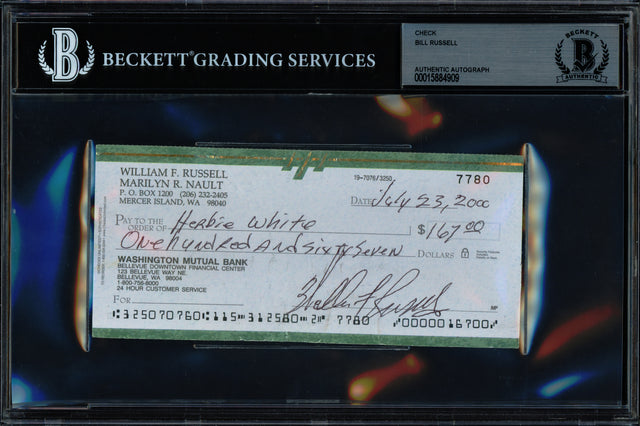 BECKETT GRADING SERVICES
CHECK
BILL RUSSELL
AUTHENTIC AUTOGRAPH
00015884909
BECKETT
B
AUTHENTIC
WILLIAM F. RUSSELL
MARILYN R. NAULT
P. O. BOX 1200 (206) 232-2405
MERCER ISLAND, WA 98040
19-7076/3250
7780
DATE July 23, 2000
PAY TO THE
ORDER OF Herbie White $ 167 00
One hundred And sixty seven DOLLARS
WASHINGTON MUTUAL BANK
BELLEVUE DOWNTOWN FINANCIAL CENTER
123 BELLEVUE WAY NE
BELLEVUE, WA 98004
1-800-756-8000
24 HOUR CUSTOMER SERVICE
FOR
William F Russell
MP
⑆325070760⑆115⑈312580⑈2⑈ 7780 ⑈0000016700⑈